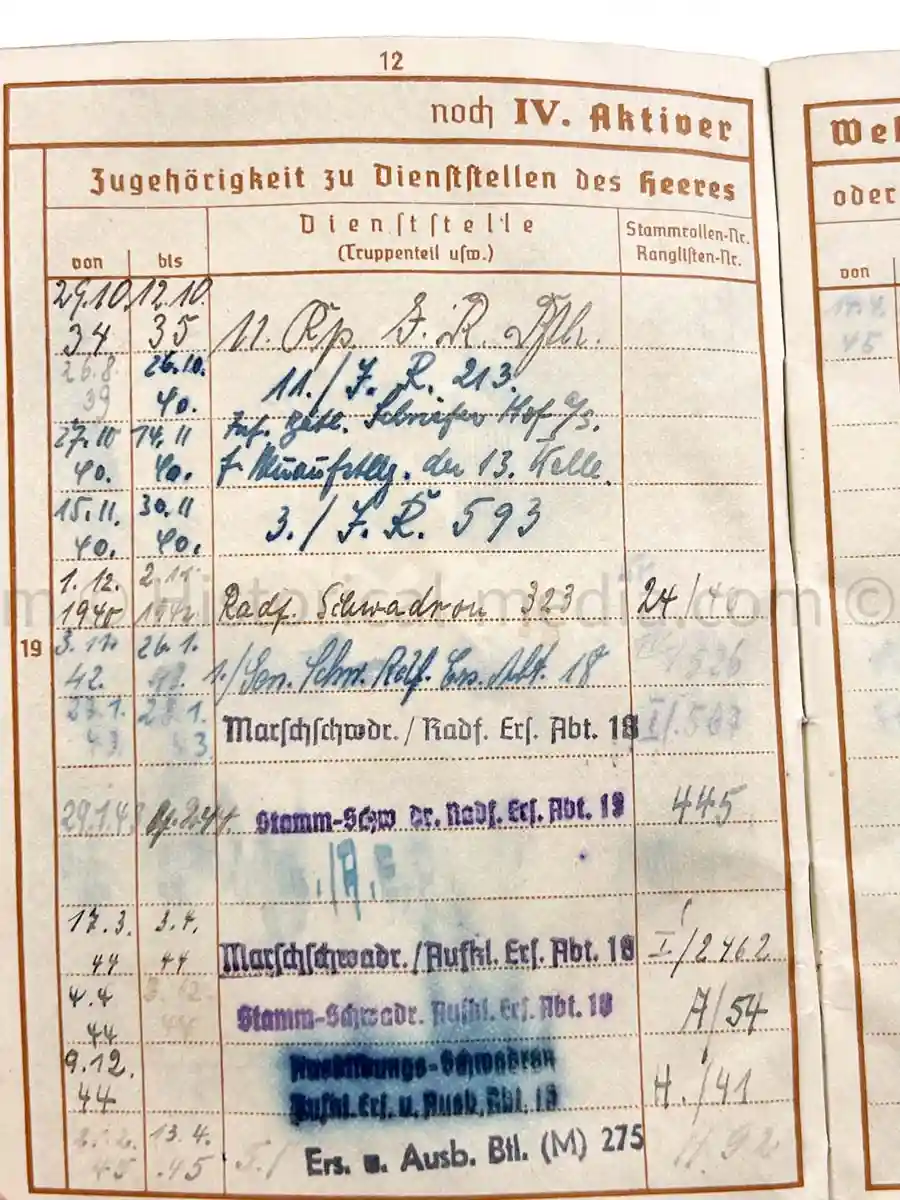 12
noch IV. Aktiver
Zugehörigkeit zu Dienststellen des Heeres
von bis
Dienststelle
(Truppenteil usw.)
Stammrollen-Nr.
Ranglisten-Nr.
29.10. 12.10.
34 35 11. Kp. J. R.
26.8. 26.10.
39 40. 11./J. R. 213.
27.10 14.11 Inf. Batl. Hof a/S.
40. 40. der 13. Welle.
15.11. 30.11
40. 40. 3./J. R. 593
1.12.
1940 Radf. Schwadron 323 24/40
19
26.1.
42. 1./Gen. Schw. Radf. Ers. Abt. 18
43 43 Marschschwdr./Radf. Ers. Abt. 18 I/.
29.1.43 Stamm-Schwdr. Radf. Ers. Abt. 18 445
17.3. 3.4.
44 44 Marschschwadr./Aufkl. Ers. Abt. 18 I/2462
4.4 3.12.
44 44 Stamm-Schwadr. Aufkl. Ers. Abt. 18 A/54
9.12. Ausbildungs-Schwadron
44 Aufkl. Ers. u. Ausb. Abt. 18 H./41
13.4.
45 .45 5./ Ers. u. Ausb. Btl. (M) 275 H. 92
oder
von
45
Historical-media.com ©